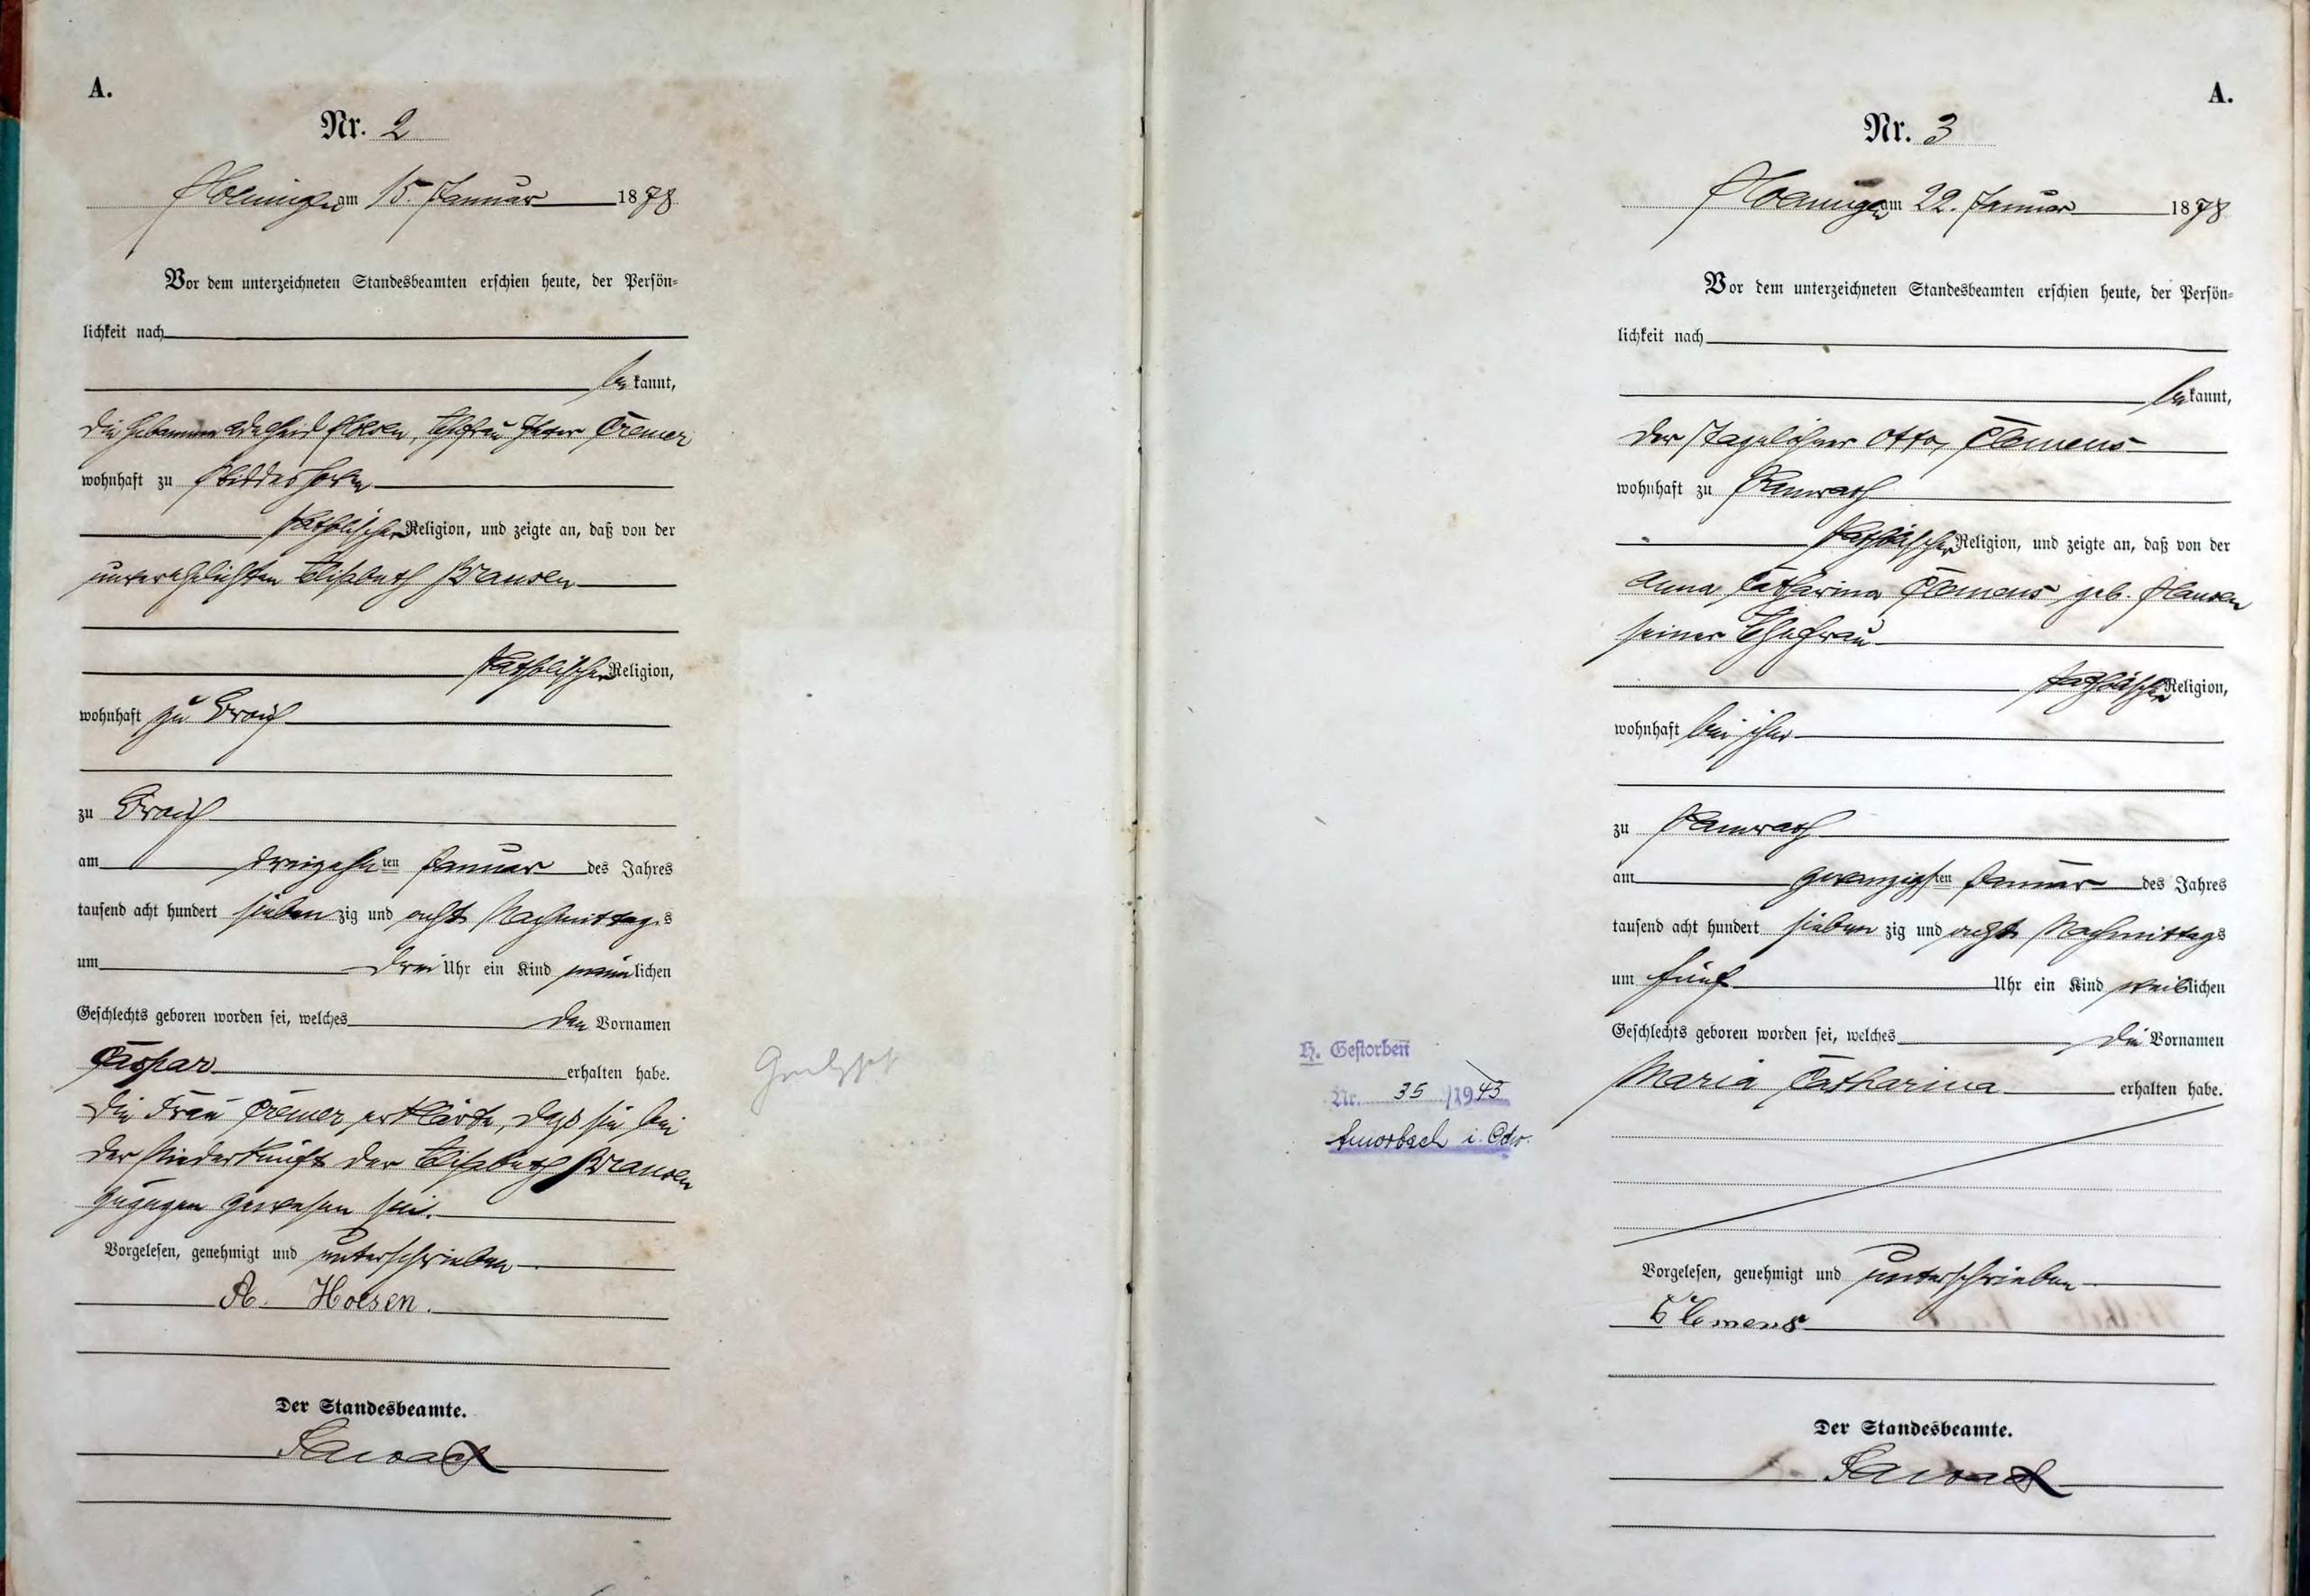 A.
Nr. 2
Hoeningen am 15. Januar 1878
Vor dem unterzeichneten Standesbeamten erschien heute, der Persön-
lichkeit nach
bekannt,
die Hebamme Adelheid Hoesen, Ehefrau Peter Cremer
wohnhaft zu
katholischer Religion, und zeigte an, daß von der
unverehelichten Elisabeth
katholischer Religion,
wohnhaft zu Broich
zu Broich
am dreizehnten Januar des Jahres
tausend acht hundert siebenzig und acht Nachmittags
um drei Uhr ein Kind männlichen
Geschlechts geboren worden sei, welches den Vornamen
Caspar erhalten habe.
Die Frau Cremer erklärte, daß sie bei
der Niederkunft der Elisabeth
zugegen gewesen sei.
Vorgelesen, genehmigt und unterschrieben
A. Hoesen.
Der Standesbeamte.
A.
Nr. 3
Hoeningen am 22. Januar 1878
Vor dem unterzeichneten Standesbeamten erschien heute, der Persön-
lichkeit nach
bekannt,
der Tagelöhner Otto Clemens
wohnhaft zu Ramrath
katholischer Religion, und zeigte an, daß von der
Anna Catharina Clemens geb.
seiner Ehefrau
katholischer Religion,
wohnhaft bei ihm
zu Ramrath
am zwanzigsten Januar des Jahres
tausend acht hundert siebenzig und acht Nachmittags
um fünf Uhr ein Kind weiblichen
Geschlechts geboren worden sei, welches die Vornamen
Maria Catharina erhalten habe.
H. Gestorben
Nr. 35 /1943
Amorbach i. Odw.
Vorgelesen, genehmigt und unterschrieben
Clemens
Der Standesbeamte.